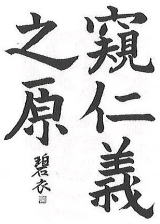 窺仁義
之原
碧衣